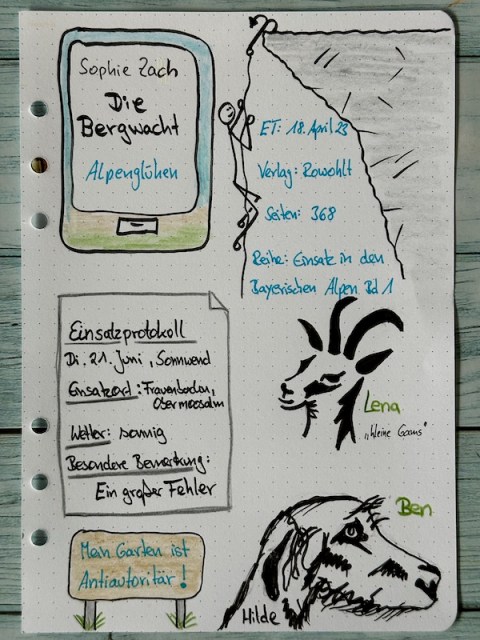 Sophie Zach
Die
Bergwacht
Alpenglühen
ET: 18. April 23
Verlag: Rowohlt
Seiten: 368
Reihe: Einsatz in den
Bayerischen Alpen Bd 1
Einsatzprotokoll
Di, 21. Juni, Sonnwend
Einsatzort: Frauenboden,
Obermoosalm
Wetter: sonnig
Besondere Bemerkung:
Ein großer Fehler
Lena
"kleine Gams"
Mein Garten ist
Antiautoritär!
Ben
Hilde